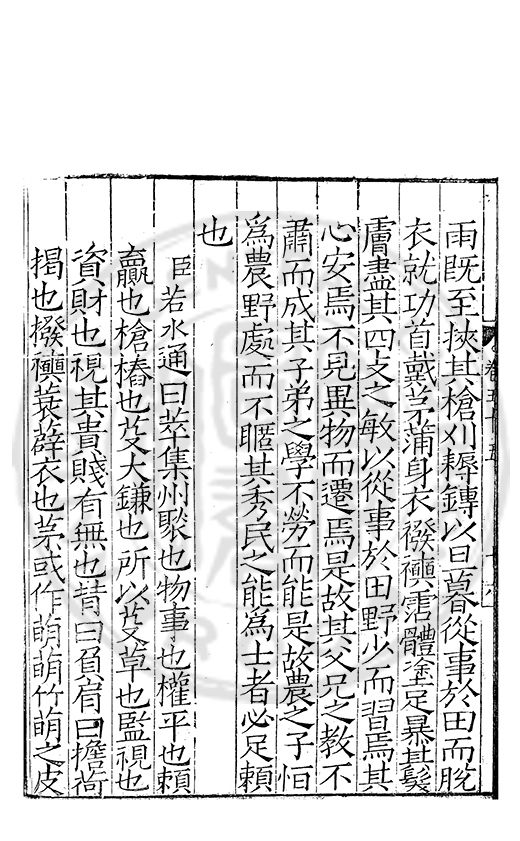 雨既至挾其槍刈耨鎛以旦暮從事於田而脫
衣就功首戴茅蒲身衣襏襫霑體塗足暴其髮
膚盡其四支之敏以從事於田野少而習焉其
心安焉不見異物而遷焉是故其父兄之教不
肅而成其子弟之學不勞而能是故農之子恒
爲農野處而不暱其秀民之能爲士者必足賴
也
臣若水通曰萃集州聚也物事也權平也賴
贏也槍樁也芟大鐮也所以芟草也監視也
資財也視其貴賤有無也背曰負肩曰擔荷
揭也襏襫蓑薜衣也茅或作萌萌竹萌之皮
卷五十五
十八